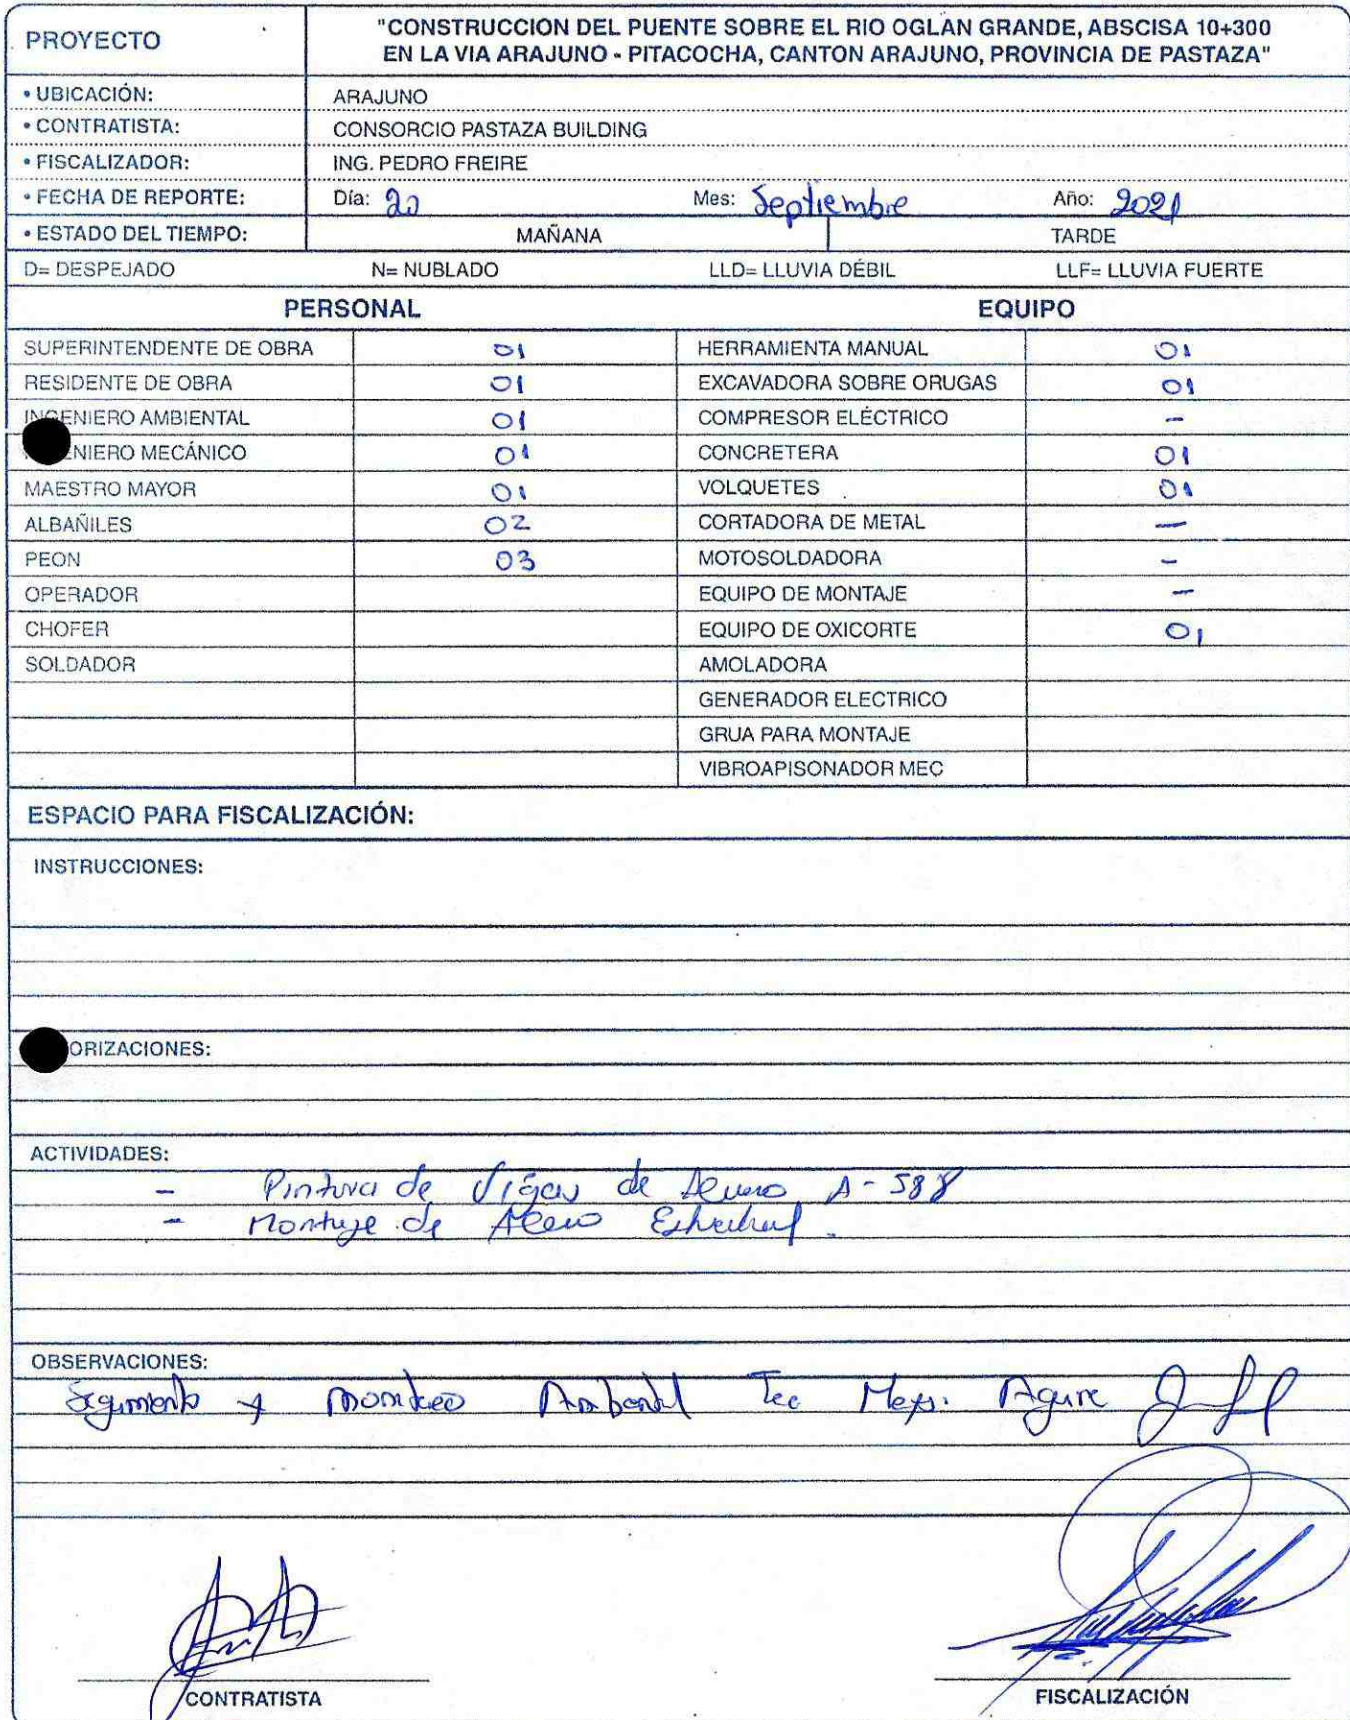 PROYECTO
"CONSTRUCCION DEL PUENTE SOBRE EL RIO OGLAN GRANDE, ABSCISA 10+300
EN LA VIA ARAJUNO - PITACOCHA, CANTON ARAJUNO, PROVINCIA DE PASTAZA"
• UBICACIÓN: ARAJUNO
• CONTRATISTA: CONSORCIO PASTAZA BUILDING
• FISCALIZADOR: ING. PEDRO FREIRE
• FECHA DE REPORTE: Día: 20 Mes: Septiembre Año: 2021
• ESTADO DEL TIEMPO: MAÑANA TARDE
D= DESPEJADO N= NUBLADO LLD= LLUVIA DÉBIL LLF= LLUVIA FUERTE
PERSONAL EQUIPO
SUPERINTENDENTE DE OBRA 01 HERRAMIENTA MANUAL 01
RESIDENTE DE OBRA 01 EXCAVADORA SOBRE ORUGAS 01
INGENIERO AMBIENTAL 01 COMPRESOR ELÉCTRICO -
ENIERO MECÁNICO 01 CONCRETERA 01
MAESTRO MAYOR 01 VOLQUETES 01
ALBAÑILES 02 CORTADORA DE METAL -
PEON 03 MOTOSOLDADORA -
OPERADOR EQUIPO DE MONTAJE -
CHOFER EQUIPO DE OXICORTE 01
SOLDADOR AMOLADORA
GENERADOR ELECTRICO
GRUA PARA MONTAJE
VIBROAPISONADOR MEC
ESPACIO PARA FISCALIZACIÓN:
INSTRUCCIONES:
ORIZACIONES:
ACTIVIDADES:
- Pintura de Vigas de Acero A-588
- Montaje de Acero Estructural.
OBSERVACIONES:
Seguimiento y Monitoreo Ambiental Tec Aguirre
CONTRATISTA FISCALIZACIÓN